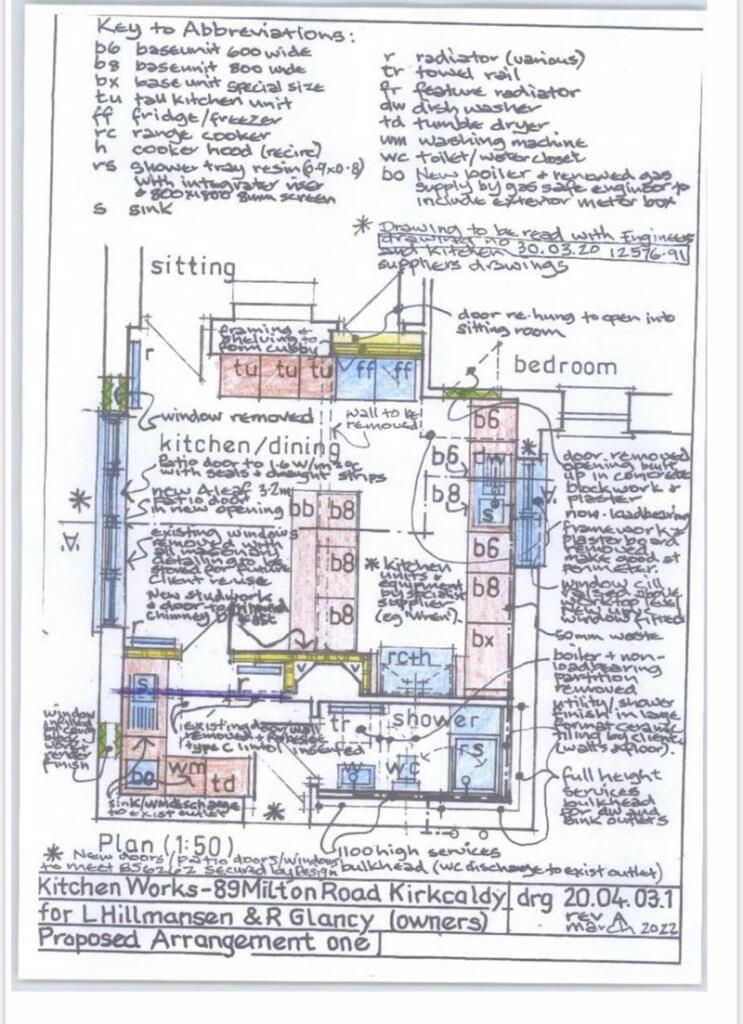 Key to Abbreviations:
b6 baseunit 600 wide
b8 baseunit 800 wide
bx base unit special size
tu tall kitchen unit
ff fridge/freezer
rc range cooker
h cooker hood (recirc)
rs shower tray resin (0.9x0.8)
with integrater riser
& 800x1800 8mm screen
s sink
r radiator (various)
tr towel rail
fr feature radiator
dw dish washer
td tumble dryer
wm washing machine
wc toilet/watercloset
bo New boiler & renewed gas
supply by gas safe engineer to
include exterior meter box
* Drawing to be read with Engineers
drawing no 30.03.20 12576.91
and kitchen
suppliers drawings
sitting
door re-hung to open into
sitting room
framing &
shelving to
form cubby
r
tu tu tu ff ff
bedroom
window removed
wall to be
removed
b6
kitchen/dining
patio door to 1.6 w/m²
with seals & draught strips
b6
dw
b8
s
new 4-leaf 3.2m
patio door
in new opening
bb b8
door removed
opening built
up in concrete
blockwork &
plaster
non-loadbearing
framework &
plasterboard
removed
make good at
perimeter.
existing windows
remove with
all masonry
detailing to be
stored for future
client re-use
b8
* kitchen
units &
equipment
by specialist
supplier
(eg 'Wren').
b6
b8
window cill
raised above
worktop level
new upvc
window fitted
New studwork
& door to
chimney breast
b8
bx
50mm waste
r
rc+h
boiler + non-
loadbearing
partition
removed
s
r
v v
tr shower
utility/shower
finish in large
format ceramic
tiling by client
(walls & floor).
window
infilling
block
work &
render
finish
existing door/wall
removed &
type C lintol inserted
w wc rs
bo wm td
full height
services
bulkhead
for dw and
sink outlets
sink/wm discharge
to exist outlet
*
Plan (1:50)
1100 high services
bulkhead (wc discharge to exist outlet)
* New doors/patio doors/windows
to meet BS6262 Secured by Design
Kitchen Works - 89 Milton Road Kirkcaldy drg 20.04.03.1
for L Hillmansen & R Glancy (owners) rev A
march 2022
Proposed Arrangement one